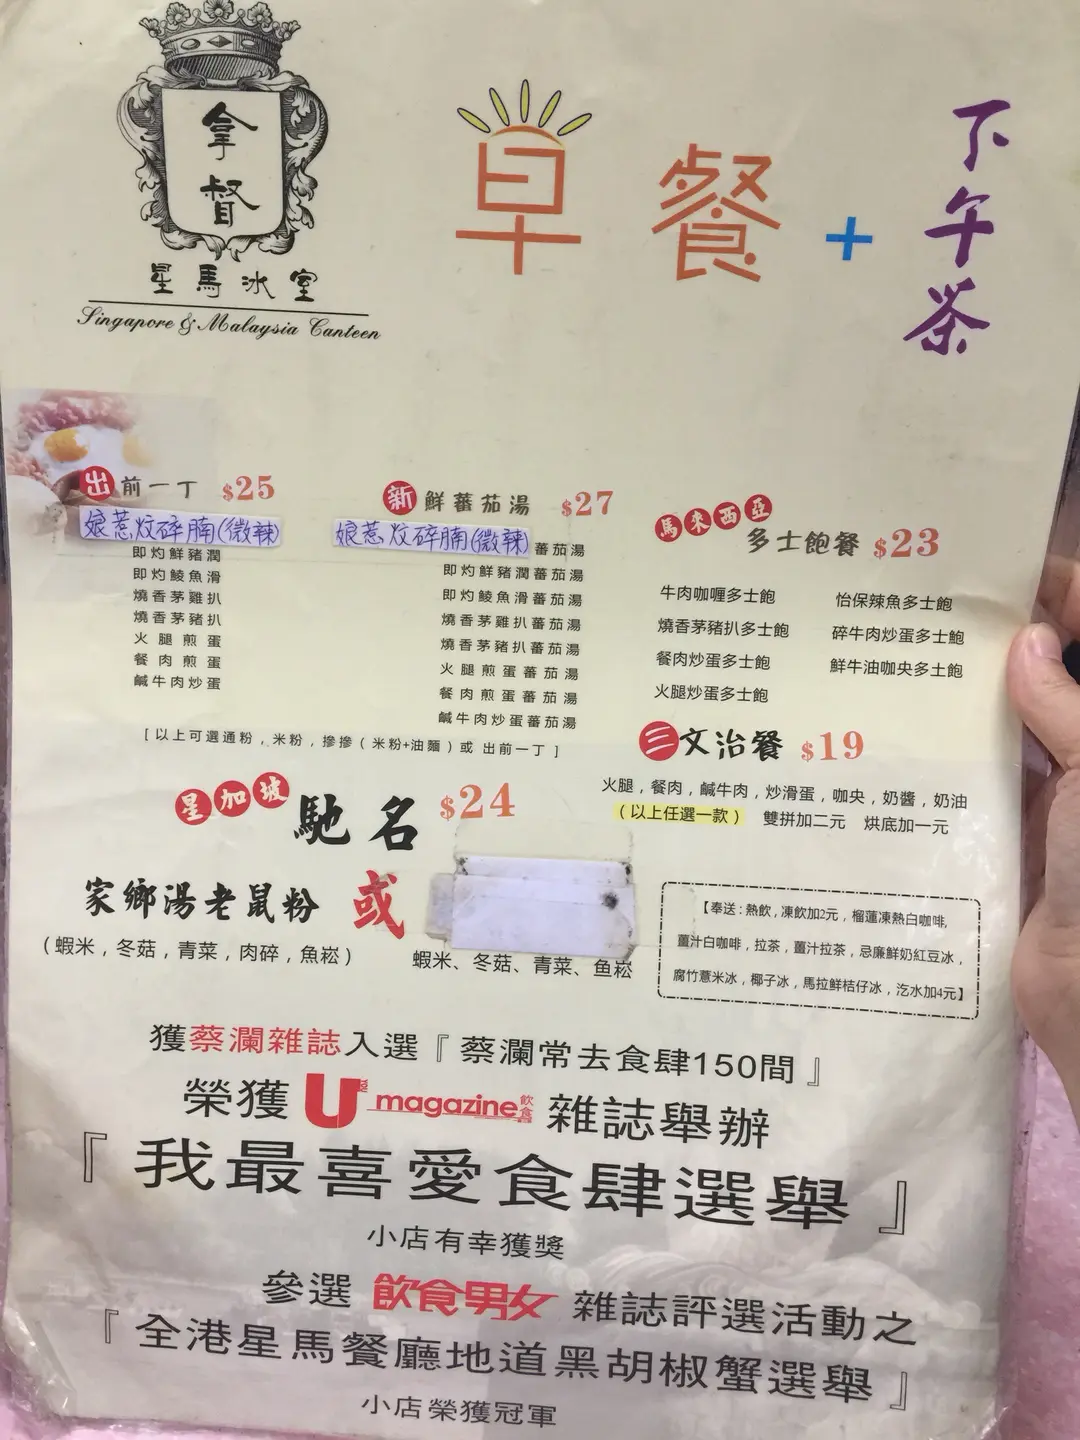 拿督
星馬冰室
Singapore & Malaysia Canteen
早餐 + 下午茶
出前一丁 $25
娘惹炆碎腩(微辣)
即灼鮮豬潤
即灼鯪魚滑
燒香茅雞扒
燒香茅豬扒
火腿煎蛋
餐肉煎蛋
鹹牛肉炒蛋
新鮮蕃茄湯 $27
娘惹炆碎腩(微辣) 蕃茄湯
即灼鮮豬潤蕃茄湯
即灼鯪魚滑蕃茄湯
燒香茅雞扒蕃茄湯
燒香茅豬扒蕃茄湯
火腿煎蛋蕃茄湯
餐肉煎蛋蕃茄湯
鹹牛肉炒蛋蕃茄湯
[以上可選通粉，米粉，摻摻（米粉+油麵）或 出前一丁]
馬來西亞
多士飽餐 $23
牛肉咖喱多士飽 怡保辣魚多士飽
燒香茅豬扒多士飽 碎牛肉炒蛋多士飽
餐肉炒蛋多士飽 鮮牛油咖央多士飽
火腿炒蛋多士飽
三文治餐 $19
火腿，餐肉，鹹牛肉，炒滑蛋，咖央，奶醬，奶油
（以上任選一款） 雙拼加二元 烘底加一元
星加坡 馳名 $24
家鄉湯老鼠粉 或
（蝦米，冬菇，青菜，肉碎，魚崧）
蝦米、冬菇、青菜、鱼崧
【奉送：熱飲，凍飲加2元，榴蓮凍熱白咖啡，
薑汁白咖啡，拉茶，薑汁拉茶，忌廉鮮奶紅豆冰，
腐竹薏米冰，椰子冰，馬拉鮮桔仔冰，汔水加4元】
獲蔡瀾雜誌入選『蔡瀾常去食肆150間』
榮獲 U magazine 飲食 雜誌舉辦
『我最喜愛食肆選舉』
小店有幸獲獎
參選 飲食男女 雜誌評選活動之
『全港星馬餐廳地道黑胡椒蟹選舉』
小店榮獲冠軍